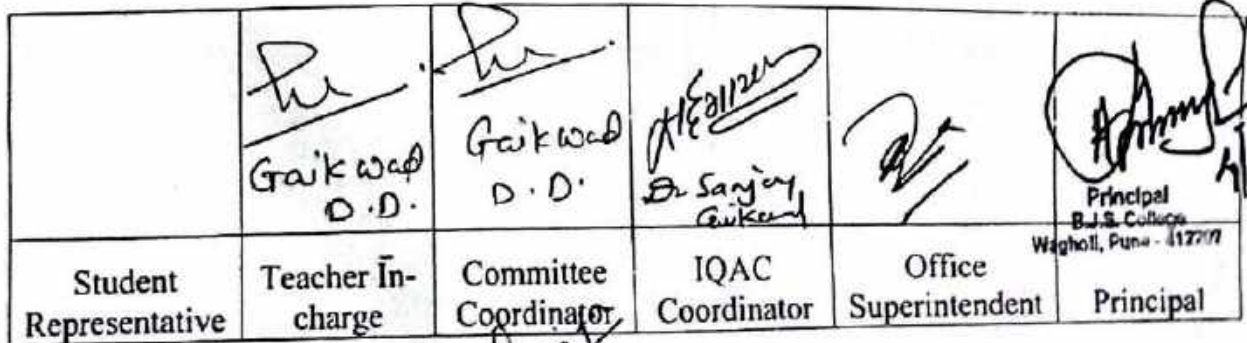 Gaikwad
D.D.
Gaikwad
D.D.
Dr Sanjay
Gaikwad
Principal
B.J.S. College
Wagholi, Pune - 412207
Student
Representative
Teacher In-
charge
Committee
Coordinator
IQAC
Coordinator
Office
Superintendent
Principal